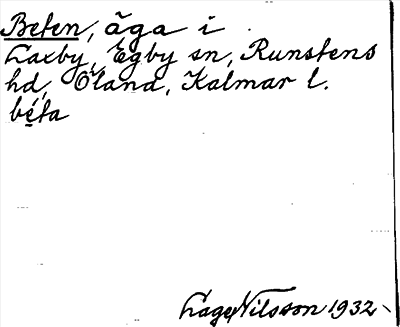 Beten, äga i
Laxby, Egby sn, Runstens
hd, Öland, Kalmar l.
bẹ́ta
Lage Nilsson 1932